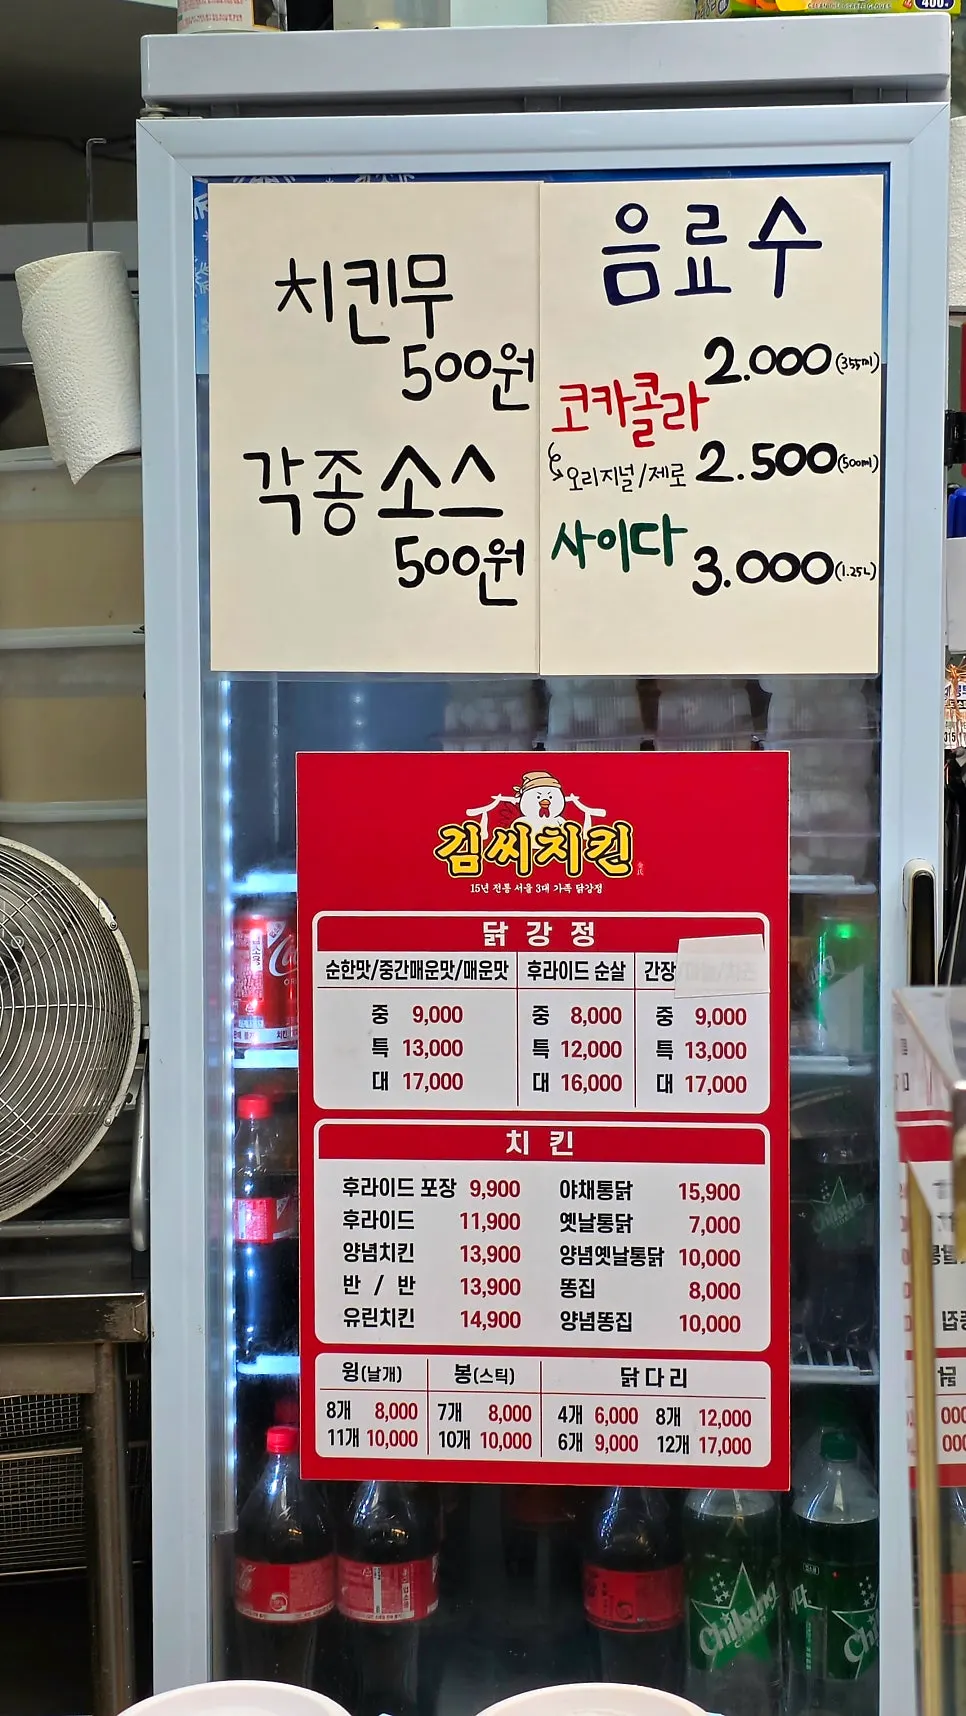 치킨무
500원
각종 소스
500원
음료수
2.000(355ml)
코카콜라
오리지널/제로 2.500(500ml)
사이다
3.000(1.25L)
김씨치킨
15년 전통 서울 3대 가족 닭강정
닭강정
순한맛/중간매운맛/매운맛 후라이드 순살 간장
중 9,000 중 8,000 중 9,000
특 13,000 특 12,000 특 13,000
대 17,000 대 16,000 대 17,000
치킨
후라이드 포장 9,900 야채통닭 15,900
후라이드 11,900 옛날통닭 7,000
양념치킨 13,900 양념옛날통닭 10,000
반 / 반 13,900 똥집 8,000
유린치킨 14,900 양념똥집 10,000
윙(날개) 봉(스틱) 닭다리
8개 8,000 7개 8,000 4개 6,000 8개 12,000
11개 10,000 10개 10,000 6개 9,000 12개 17,000
Chilsung